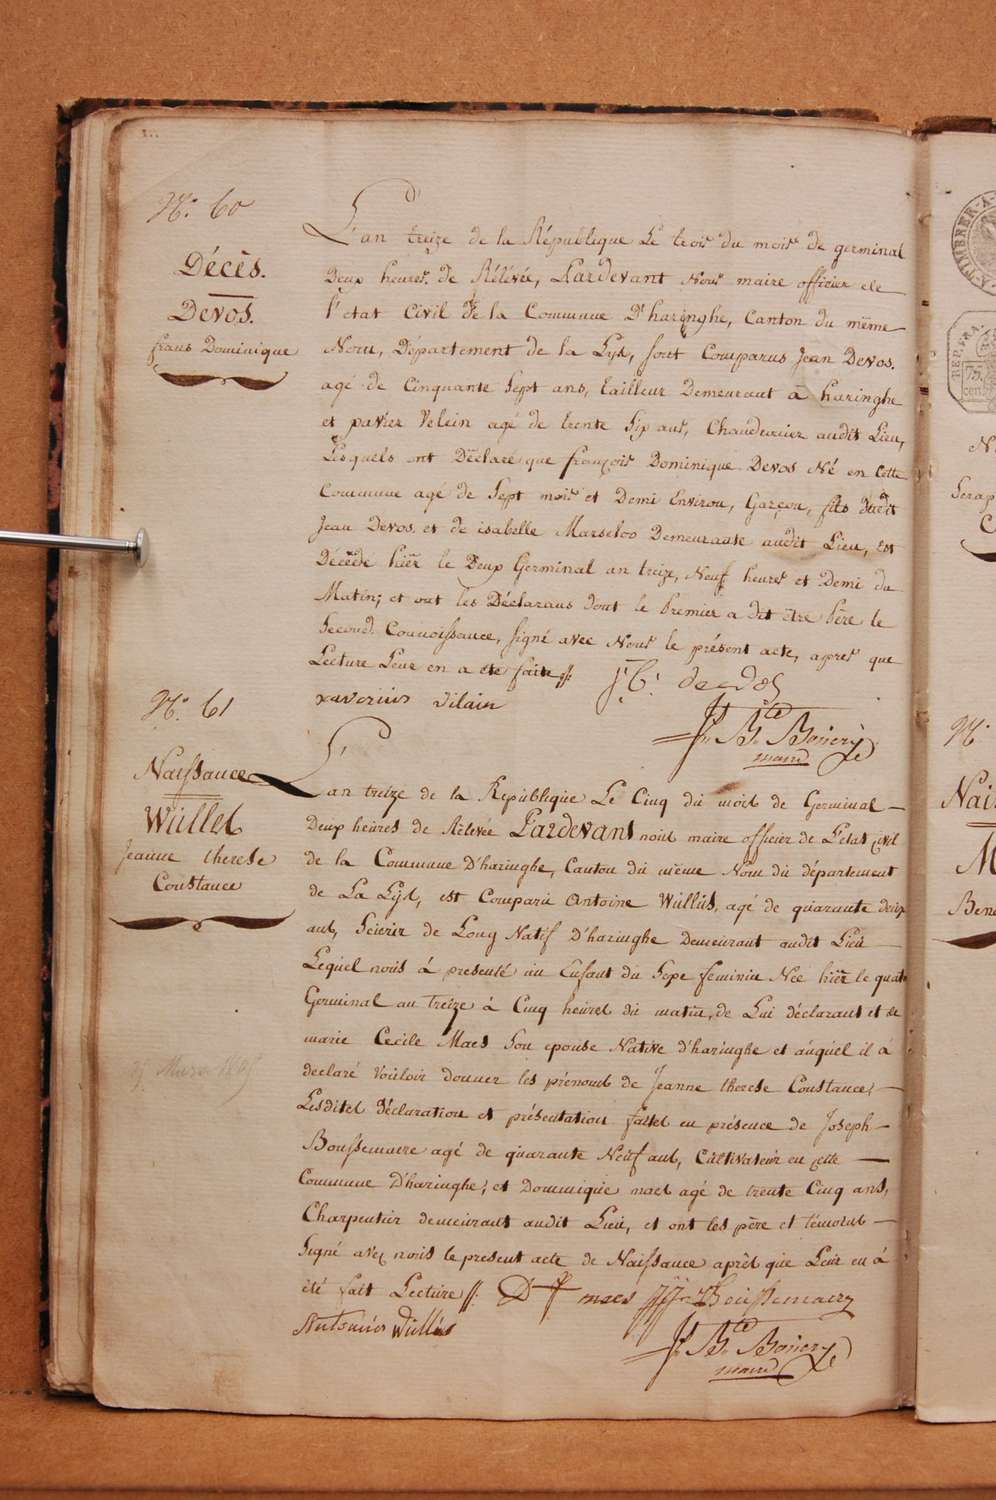 N.° 60
Décès.
Devos.
frans Dominique
L'an treize de la République Le trois du mois de germinal
Deux heures de Rélévée, Pardevant Nous maire officier de
l'état Civil de la Commune D'haringhe, Canton du même
Nom, Département de la Lys, sont Comparus Jean Devos.
agé de Cinquante Sept ans, tailleur Demeurant à haringhe
et pavier Velein agé de trente Six ans, Chaudernier audit Lieu,
Lesquels ont Déclaré que françois Dominique Devos Né en Cette
Commune agé de Sept mois et Demi Environ, Garçon, fils dudit
Jean Devos et de isabelle Marseloo Demeurante audit Lieu, Est
Décédé hier le Deux Germinal an treize, Neuf heures et Demi du
Matin; et ont les Déclarans dont le Premier a dit être Père le
Second Connoissance, signé avec Nous le présent acte, après que
Lecture Leur en a été faite //.
xaverius vilain
J: B. Bonery
maire
N.° 61
Naissance
Wullet
Jeanne therese
Constance
L'an treize de la République Le Cinq du mois de Germinal —
Deux heures de Rélevée Pardevant nous maire officier de L'etat Civil
de la Commune D'haringhe, Canton du même Nom du département
de La Lys, est Comparu Antoine Wullus, agé de quarante deux
ans, Scierir de Long Natif D'haringhe Demeurant audit Lieu
Lequel nous à presenté un Enfant du Sexe feminin Née hier le quat
Germinal an treize à Cinq heures du matin, de Lui déclarant et de
marie Cecile Maes Son epouse Native d'haringhe et auquel il à
declaré Vouloir donner les prénoms de Jeanne therese Constance; —
Lesdites Déclaration et présentation faites en présence de Joseph —
Boussemaere agé de quarante Neuf ans, Cultivateur en cette —
Commune D'haringhe; et Dominique maes agé de trente Cinq ans,
Charpentier demeurant audit Lieu, et ont les père et témoins —
Signé avec nous le present acte de Naissance après que Leur en à
été fait Lecture //. D maes Boussemaery
Antonius Wullus
J: B. Bonery
maire